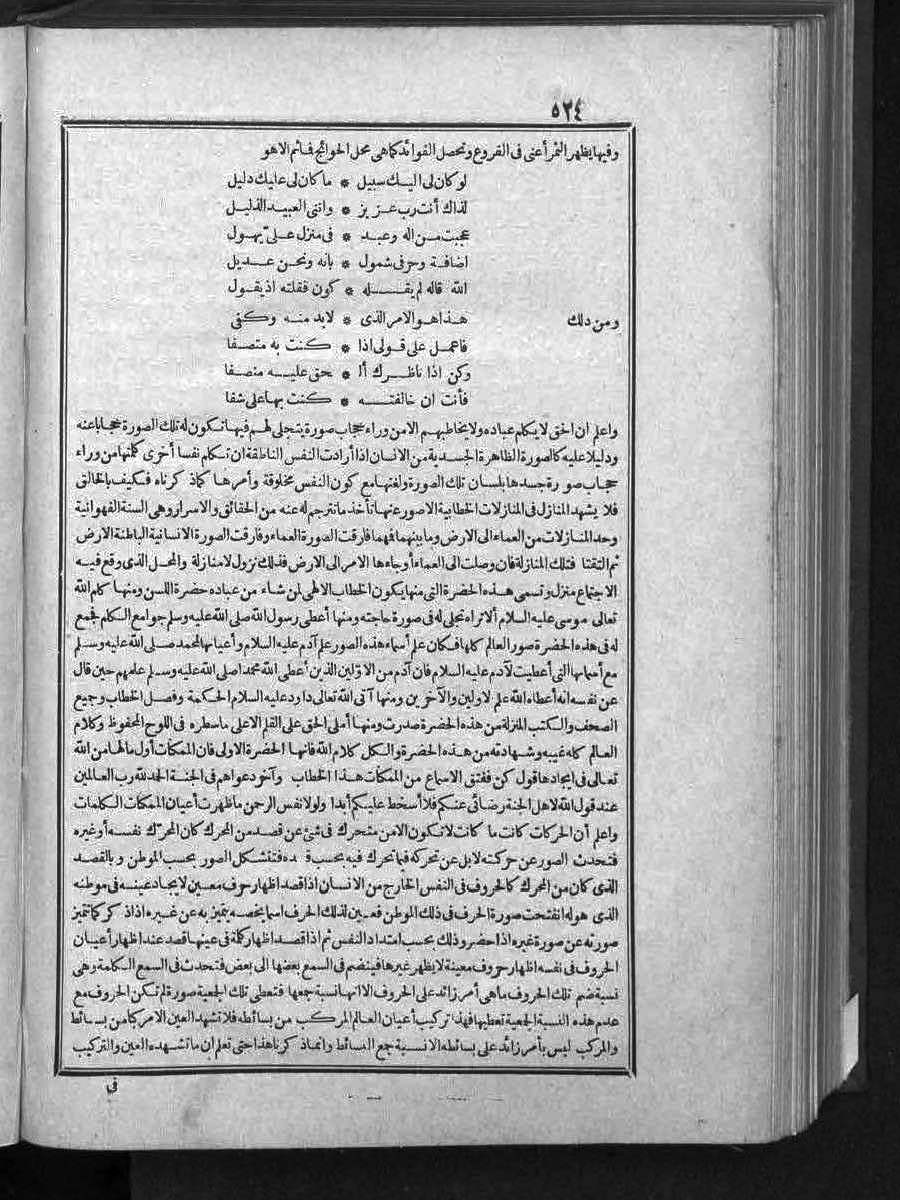 ٥٢٤
وفيها يظهر الثمر أعنى فى الفروع وتحصل الفوائد كما هى محل الحوائج فاثم الاهو
لو كان لى اليك سبيل * ما كان لى عليك دليل
لذاك أنت رب عزيز * واننى العبيد الذليل
عجبت من اله وعبد * فى منزل علىّ يهول
اضافة وحرفى شمول * بانه ونحن عديل
الله قاله لم يقله * كون فقلته اذ يقول
ومن ذلك هذا هو الامر الذى * لابد منه وكفى
فاعمل على قولى اذا * كنت به متصفا
وكن اذا ناظرك ال * حق عليه منصفا
فأنت ان خالفته * كنت بها على شفا
واعلم ان الحق لا يكلم عباده ولا يخاطبهم الامن وراء حجاب صورة يتجلى لهم فيها تكون له تلك الصورة حجابا عنه
ودليلا عليه كالصورة الظاهرة الجسدية من الانسان اذا أرادت النفس الناطقة ان تكلم نفسا أخرى كلمتها من وراء
حجاب صورة جسدها بلسان تلك الصورة ولغتها مع كون النفس مخلوقة وأمرها كما ذكرناه فكيف بالخالق
فلا يشهد المنازل فى المنازلات الخطابية الا صور عنها تأخذ ما تترجم له عنه من الحقائق والاسرار وهى السنة الفهوانية
وحد المنازلات من العماء الى الارض وما بينهما فهما فارقت الصورة العماء وفارقت الصورة الانسانية الباطنة الارض
ثم التقتا فتلك المنازلة فان وصلت الى العماء أو جاءها الامر الى الارض فذلك نزول لا منازلة والمحل الذى وقع فيه
الاجتماع منزل وتسمى هذه الحضرة التى منها يكون الخطاب الالهى لمن شاء من عباده حضرة اللسن ومنها كلم الله
تعالى موسى عليه السلام ألا تراه تجلى له فى صورة حاجته ومنها أعطى رسول الله صلى الله عليه وسلم جوامع الكلم فجمع
له فى هذه الحضرة صور العالم كلها فكان علم أسماء هذه الصور علم آدم عليه السلام وأعيانها لمحمد صلى الله عليه وسلم
مع أسمائها التى أعطيت لآدم عليه السلام فان آدم من الاوّلين الذين أعطى الله محمدا صلى الله عليه وسلم علمهم حين قال
عن نفسه انه أعطاه الله علم الاولين والآخرين ومنها آتى الله تعالى داود عليه السلام الحكمة وفصل الخطاب وجميع
الصحف والكتب المنزلة من هذه الحضرة صدرت ومنها أملى الحق على القلم الاعلى ما سطره فى اللوح المحفوظ وكلام
العالم كله غيبه وشهادته من هذه الحضرة والكل كلام الله فانها الحضرة الاولى فان الممكنات أول ما لها من الله
تعالى فى ايجادها قول كن ففتق الاسماع من الممكنات هذا الخطاب وآخر دعواهم فى الجنة الحمد لله رب العالمين
عند قول الله لاهل الجنة رضائى عنكم فلا أسخط عليكم أبدا ولولا نفس الرحمن ما ظهرت أعيان الممكنات الكلمات
واعلم أن الحركات كانت ما كانت لا تكون الامن متحرك فى شئ عن قصد من المحرك كان المحرّك نفسه أو غيره
فتحدث الصور عن حركته لا بل عن تحركه فيما تحرك فيه بحسب قصده فتتشكل الصور بحسب الموطن وبالقصد
الذى كان من المحرك كالحروف فى النفس الخارج من الانسان اذا قصد اظهار حرف معين لايجاد عينه فى موطنه
الذى هو له انفتحت صورة الحرف فى ذلك الموطن فعين لذلك الحرف اسما يخصه يتميز به عن غيره اذا ذكر كما تتميز
صورته عن صورة غيره اذا حضر وذلك بحسب امتداد النفس ثم اذا قصد اظهار كلمة فى عينها قصد عند اظهار أعيان
الحروف فى نفسه اظهار حروف معينة لا يظهر غيرها فينضم فى السمع بعضها الى بعض فتحدث فى السمع الكلمة وهى
نسبة ضم تلك الحروف ما هى أمر زائد على الحروف الا انها نسبة جمعها فتعطى تلك الجمعية صورة لم تكن الحروف مع
عدم هذه النسبة الجمعية تعطيها فهذا تركيب أعيان العالم المركب من بسائطه فلا تشهد العين الامركبا من بسائط
والمركب ليس بأمر زائد على بسائطه الا نسبة جمع البسائط وانما ذكرنا هذا حتى تعلم ان ما تشهده العين والتركيب
فى